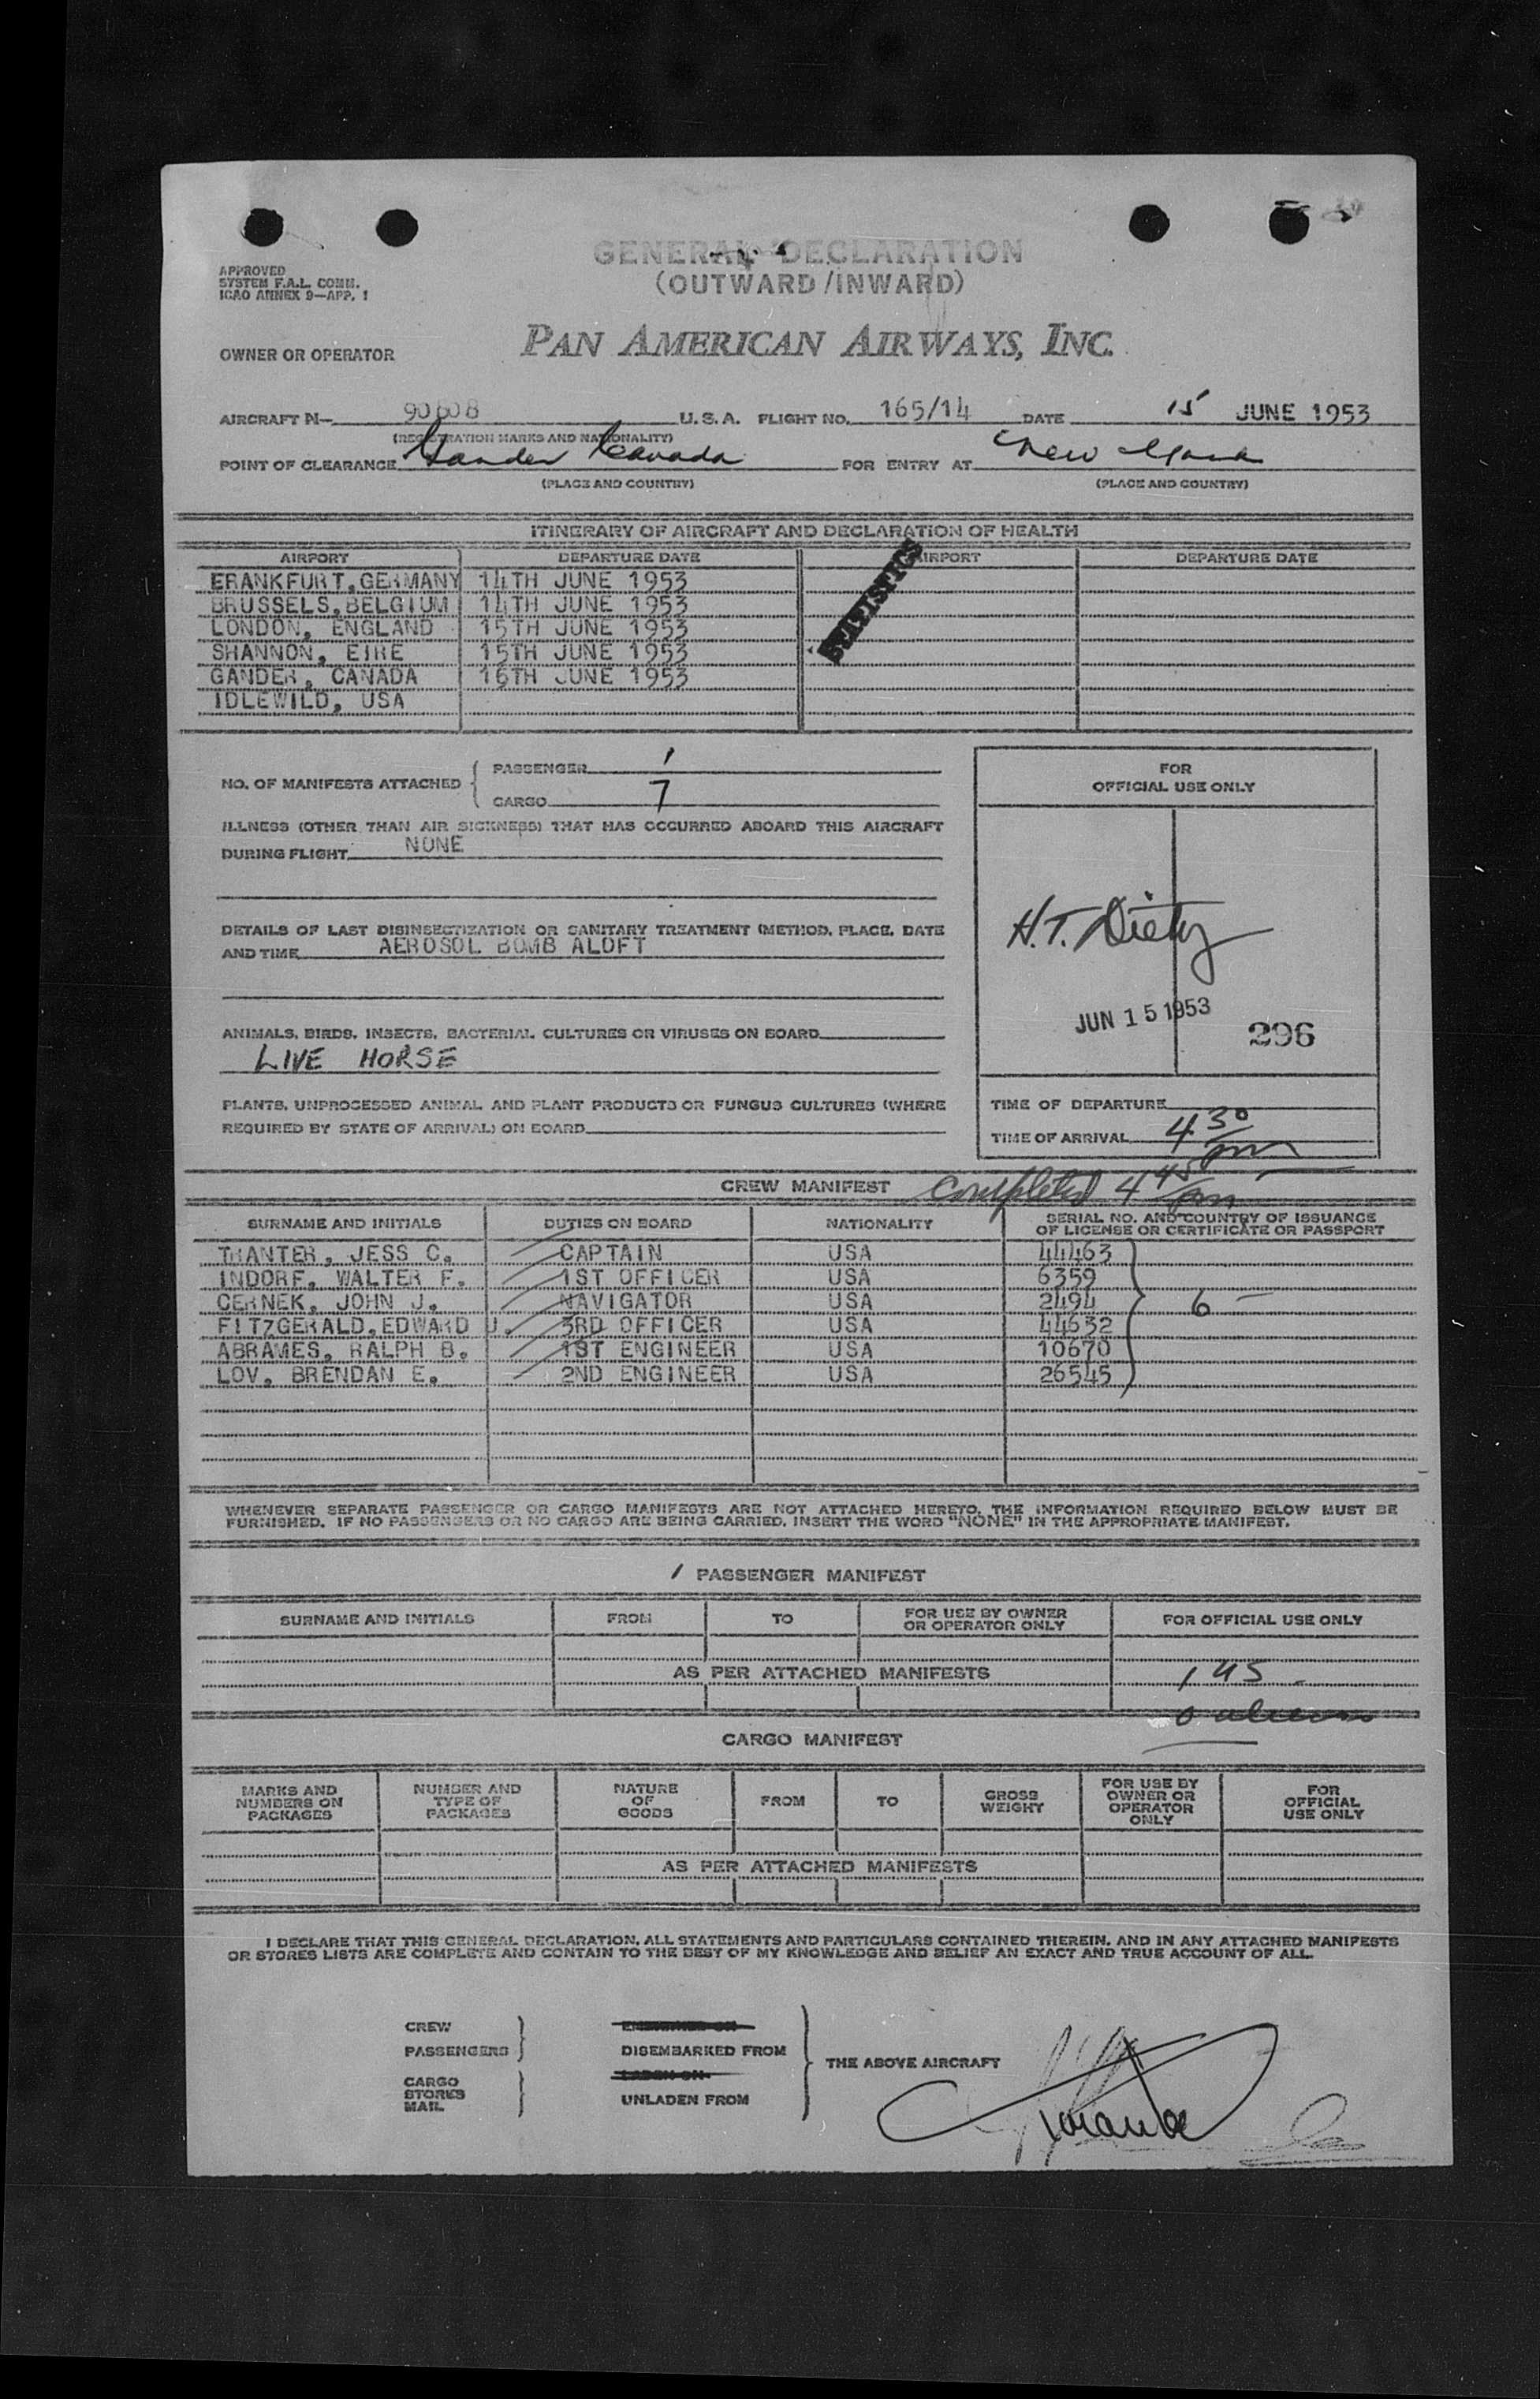 GENERAL DECLARATION
(OUTWARD/INWARD)
APPROVED
SYSTEM F.A.L. COMM.
ICAO ANNEX 9—APP. 1
OWNER OR OPERATOR PAN AMERICAN AIRWAYS, INC.
AIRCRAFT N— 90608 U.S.A. FLIGHT NO. 165/14 DATE 15 JUNE 1953
(REGISTRATION MARKS AND NATIONALITY)
POINT OF CLEARANCE Gander Canada FOR ENTRY AT New York
(PLACE AND COUNTRY) (PLACE AND COUNTRY)
ITINERARY OF AIRCRAFT AND DECLARATION OF HEALTH
AIRPORT DEPARTURE DATE AIRPORT DEPARTURE DATE
STATISTICS
FRANKFURT, GERMANY 14TH JUNE 1953
BRUSSELS, BELGIUM 14TH JUNE 1953
LONDON, ENGLAND 15TH JUNE 1953
SHANNON, EIRE 15TH JUNE 1953
GANDER, CANADA 16TH JUNE 1953
IDLEWILD, USA
NO. OF MANIFESTS ATTACHED
PASSENGER 1
CARGO 7
ILLNESS (OTHER THAN AIR SICKNESS) THAT HAS OCCURRED ABOARD THIS AIRCRAFT
DURING FLIGHT NONE
DETAILS OF LAST DISINSECTIZATION OR SANITARY TREATMENT (METHOD, PLACE, DATE
AND TIME AEROSOL BOMB ALOFT
ANIMALS, BIRDS, INSECTS, BACTERIAL CULTURES OR VIRUSES ON BOARD
LIVE HORSE
PLANTS, UNPROCESSED ANIMAL AND PLANT PRODUCTS OR FUNGUS CULTURES (WHERE
REQUIRED BY STATE OF ARRIVAL) ON BOARD
FOR
OFFICIAL USE ONLY
H.T. Dietz
JUN 15 1953
296
TIME OF DEPARTURE
TIME OF ARRIVAL 4 30 pm
CREW MANIFEST Completed 4 45 pm
SURNAME AND INITIALS DUTIES ON BOARD NATIONALITY SERIAL NO. AND COUNTRY OF ISSUANCE
OF LICENSE OR CERTIFICATE OR PASSPORT
TRANTER, JESS C. CAPTAIN USA 44463
INDORF, WALTER F. 1ST OFFICER USA 6359
CERNEK, JOHN J. NAVIGATOR USA 2494 6
FITZGERALD, EDWARD J. 3RD OFFICER USA 44632
ABRAMES, RALPH B. 1ST ENGINEER USA 10670
LOV, BRENDAN E. 2ND ENGINEER USA 26545
WHENEVER SEPARATE PASSENGER OR CARGO MANIFESTS ARE NOT ATTACHED HERETO, THE INFORMATION REQUIRED BELOW MUST BE
FURNISHED. IF NO PASSENGERS OR NO CARGO ARE BEING CARRIED, INSERT THE WORD "NONE" IN THE APPROPRIATE MANIFEST.
1 PASSENGER MANIFEST
SURNAME AND INITIALS FROM TO FOR USE BY OWNER
OR OPERATOR ONLY FOR OFFICIAL USE ONLY
AS PER ATTACHED MANIFESTS 1 US
0 aliens
CARGO MANIFEST
MARKS AND
NUMBERS ON
PACKAGES
NUMBER AND
TYPE OF
PACKAGES
NATURE
OF
GOODS
FROM
TO
GROSS
WEIGHT
FOR USE BY
OWNER OR
OPERATOR
ONLY
FOR
OFFICIAL
USE ONLY
AS PER ATTACHED MANIFESTS
I DECLARE THAT THIS GENERAL DECLARATION, ALL STATEMENTS AND PARTICULARS CONTAINED THEREIN, AND IN ANY ATTACHED MANIFESTS
OR STORES LISTS ARE COMPLETE AND CONTAIN TO THE BEST OF MY KNOWLEDGE AND BELIEF AN EXACT AND TRUE ACCOUNT OF ALL.
CREW
PASSENGERS
CARGO
STORES
MAIL
EMBARKED ON
DISEMBARKED FROM
LADEN ON
UNLADEN FROM
THE ABOVE AIRCRAFT